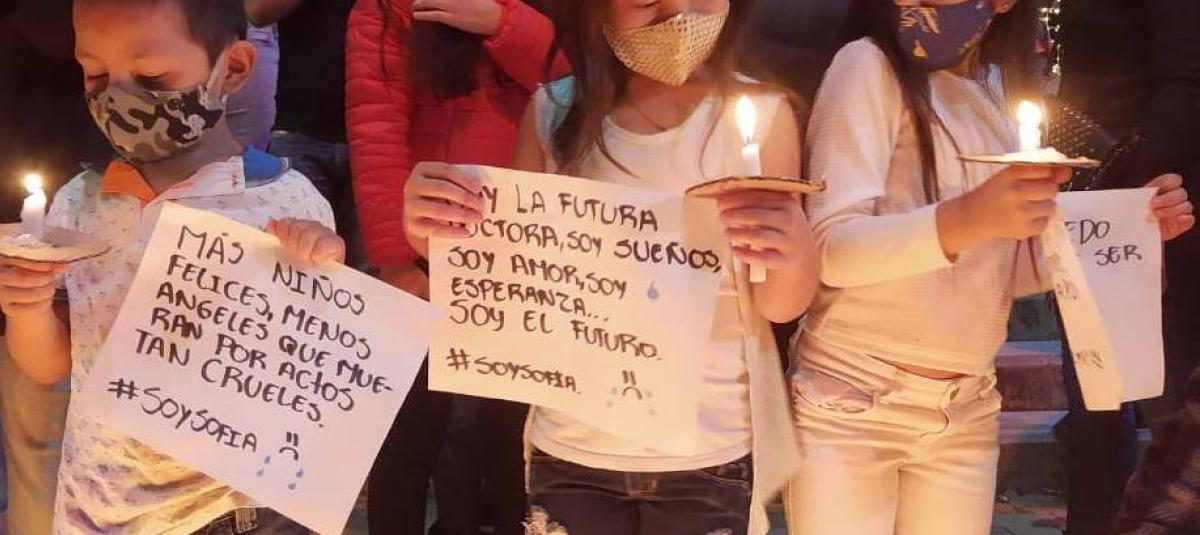 MÁS NIÑOS
FELICES, MENOS
ANGELES QUE MUE-
RAN POR ACTOS
TAN CRUELES.
#SOYSOFIA
Y LA FUTURA
CTORA, SOY SUEÑOS,
SOY AMOR, SOY
ESPERANZA...
SOY EL FUTURO.
#SOYSOFIA.
EDO
SER